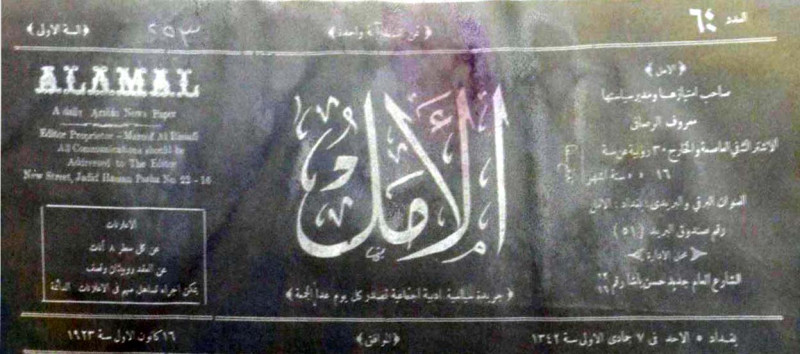 العدد ٦٤
﴿ ثمن النسخة آنة واحدة ﴾
﴿ السنة الاولى ﴾
٢٥٣
﴿ الامل ﴾
صاحب امتيازها ومدير سياستها
معروف الرصافي
الاشتراك في العاصمة والخارج ٣٠ روبية عن سنة
١٦ » » ستة اشهر
العنوان البرقي والبريدي : بغداد : الامل
رقم صندوق البريد ( ٥١ )
محل الادارة
الشارع العام جديد حسن باشا رقم ٢٢ ١٦
الأمل
﴿ جريدة سياسية ادبية اجتماعية تصدر كل يوم عدا الجمعة ﴾
ALAMAL
A daily Arabic News Paper
Editor Proprietor - Maroof Al Rasafi
All Communications should be
Addressed to The Editor
New Street, Jadid Hassan Pasha No. 22 - 16
الاعلانات
عن كل سطر ٨ آنات
عن العقد روبيتان ونصف
يمكن اجراء تساهل مهم في الاعلانات الدائمة
بغداد * الاحد في ٧ جمادى الاولى سنة ١٣٤٢
﴿ الموافق ﴾
١٦ كانون الاول سنة ١٩٢٣